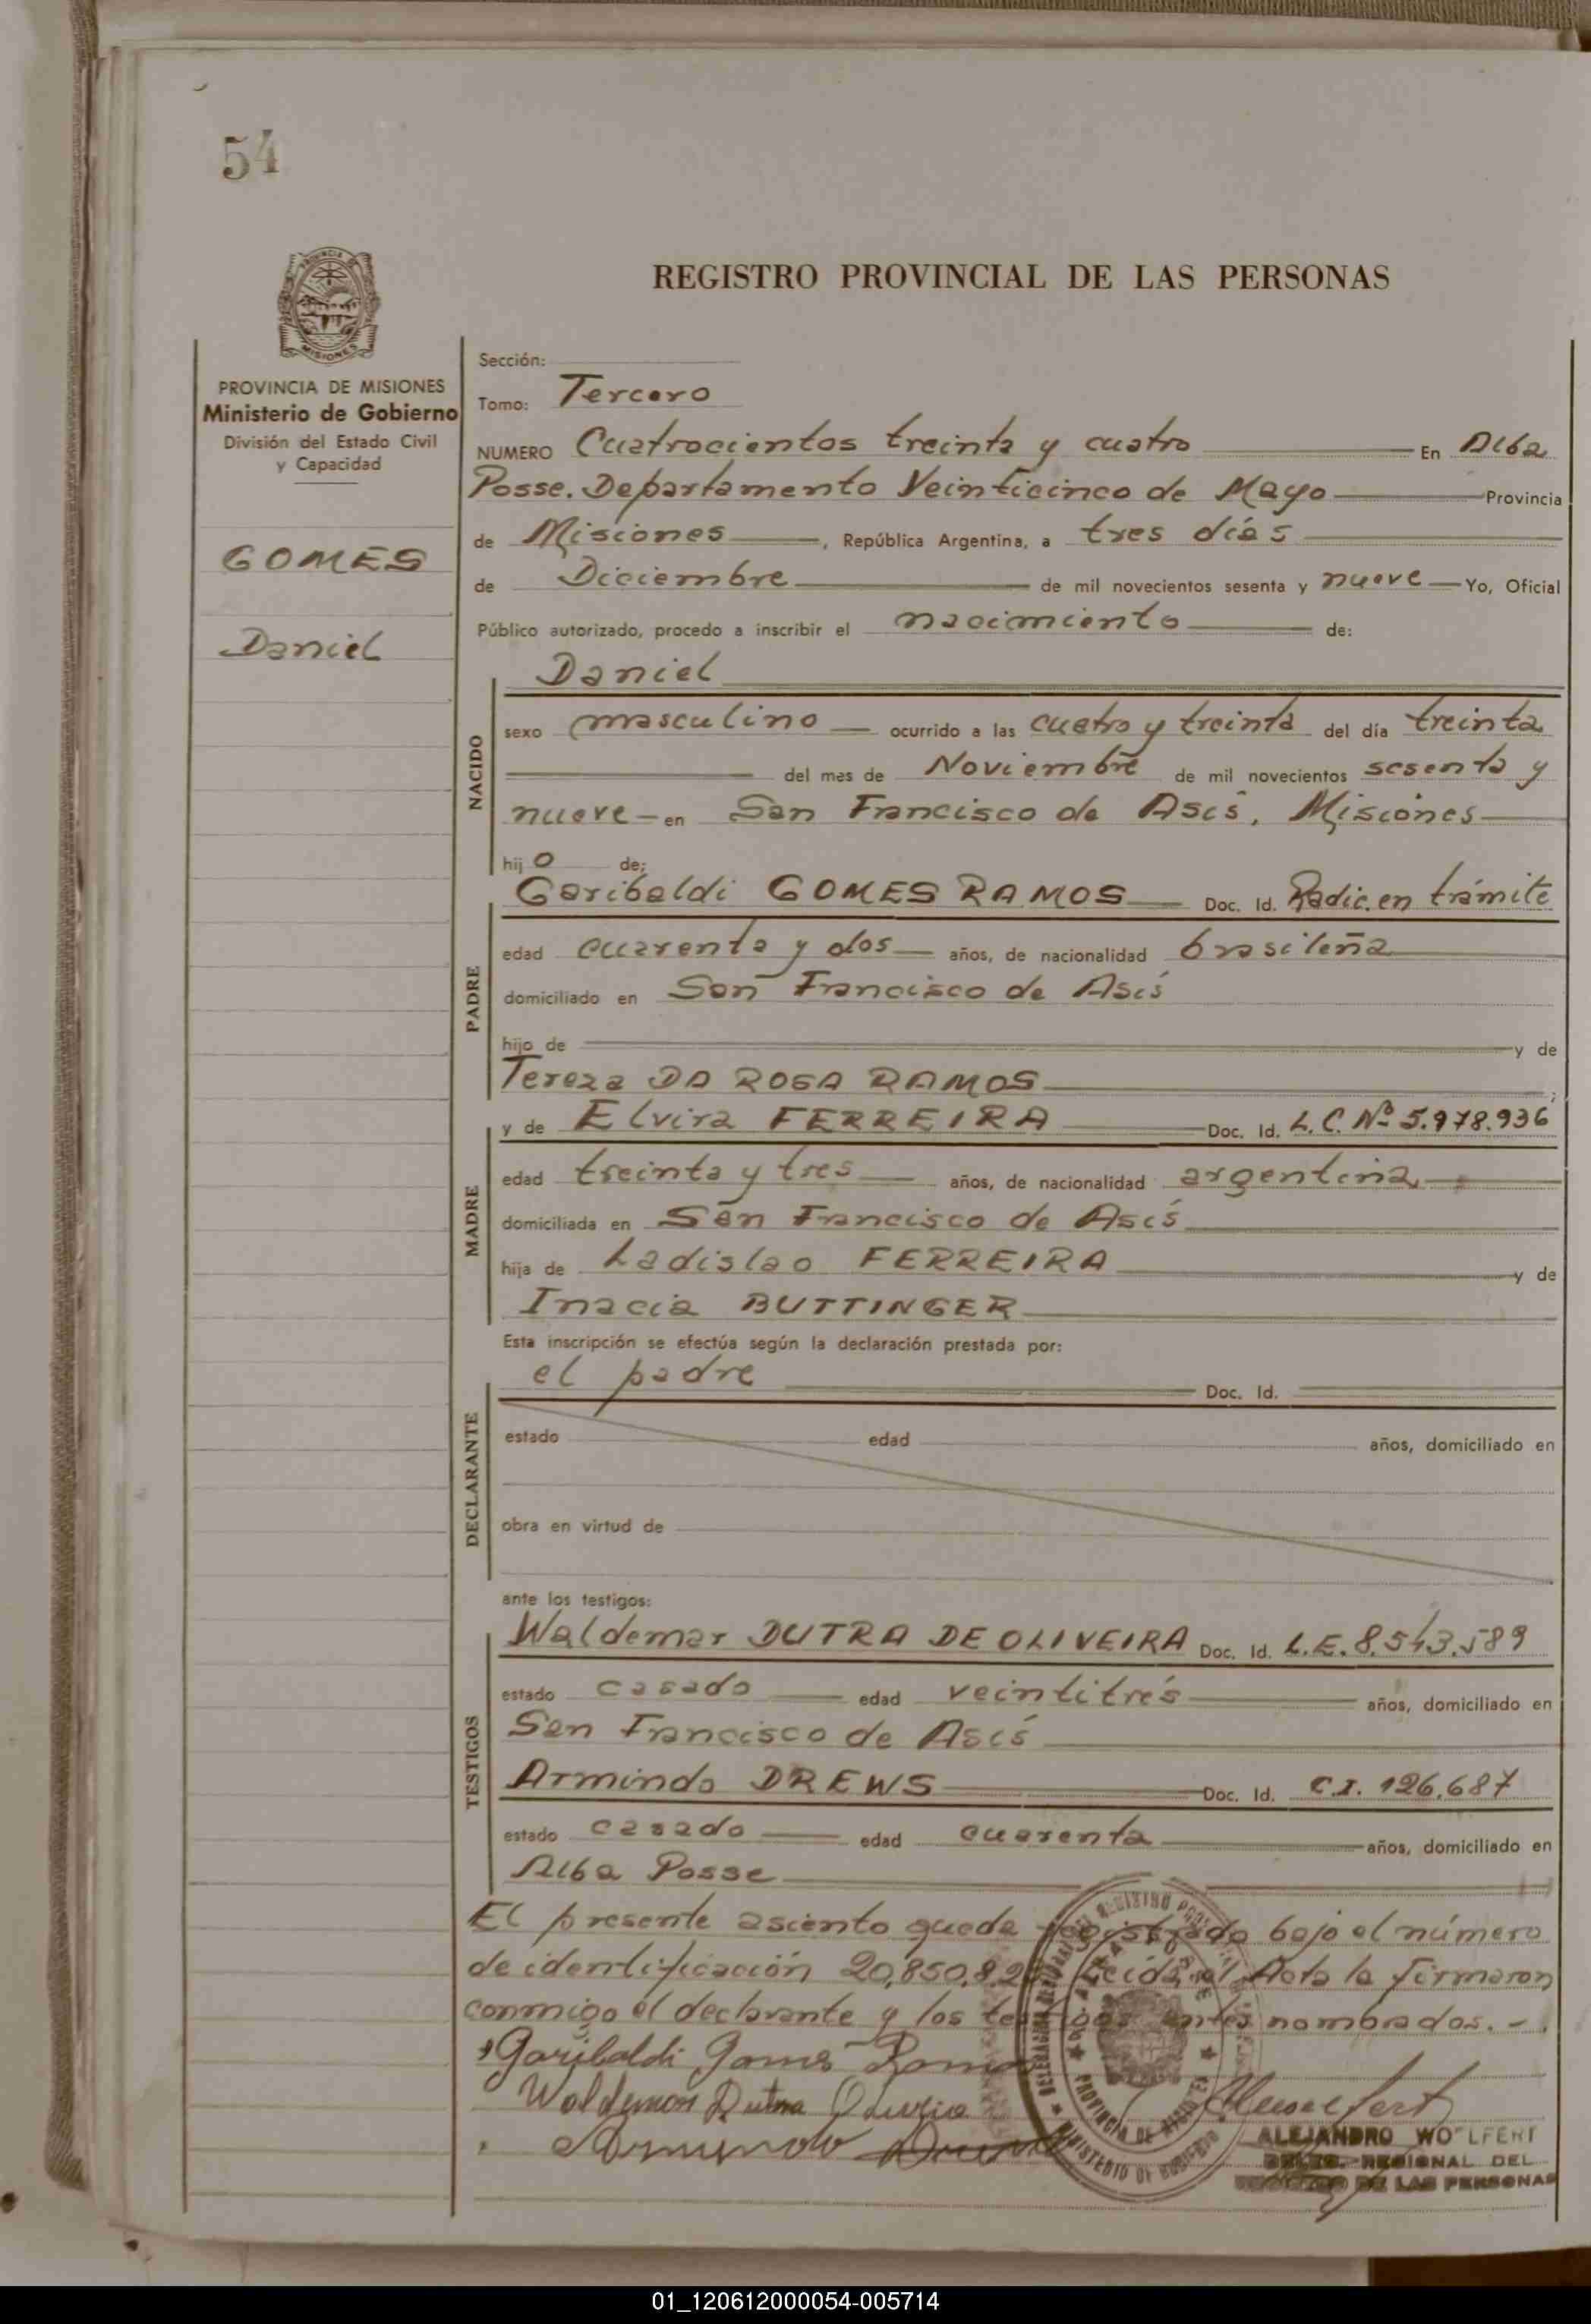 54
REGISTRO PROVINCIAL DE LAS PERSONAS
MISIONES
PROVINCIA DE MISIONES
Ministerio de Gobierno
División del Estado Civil
y Capacidad
GOMES
Daniel
Sección:
Tomo: Tercero
NUMERO Cuatrocientos treinta y cuatro En Alba
Posse. Departamento Veinticinco de Mayo Provincia
de Misiones, República Argentina, a tres días
de Diciembre de mil novecientos sesenta y nueve Yo, Oficial
Público autorizado, procedo a inscribir el nacimiento de:
Daniel
NACIDO
sexo masculino ocurrido a las cuatro y treinta del día treinta
del mes de Noviembre de mil novecientos sesenta y
nueve en San Francisco de Asís, Misiones
hijo de;
Garibaldi GOMES RAMOS Doc. Id. Radic. en trámite
PADRE
edad cuarenta y dos años, de nacionalidad brasileña
domiciliado en San Francisco de Asís
hijo de y de
Tereza DA ROSA RAMOS ;
y de Elvira FERREIRA Doc. Id. L.C. Nº 5.978.936
MADRE
edad treinta y tres años, de nacionalidad argentina
domiciliada en San Francisco de Asís
hija de Ladislao FERREIRA y de
Inacia BUTTINGER
Esta inscripción se efectúa según la declaración prestada por:
el padre Doc. Id.
DECLARANTE
estado edad años, domiciliado en
obra en virtud de
ante los testigos:
Waldemar DUTRA DE OLIVEIRA Doc. Id. L.E. 8.543.589
TESTIGOS
estado casado edad veintitrés años, domiciliado en
San Francisco de Asís
Armindo DREWS Doc. Id. C.I. 126.687
estado casado edad cuarenta años, domiciliado en
Alba Posse
El presente asiento queda registrado bajo el número
de identificación Leída el Acta la firmaron
conmigo el declarante y los testigos antes nombrados. -
Garibaldi Gomes Ramos
Waldemar Dutra Oliveira
Armindo Drews
ALEJANDRO WOLFERT
REGIONAL DEL
DE LAS PERSONAS
01_120612000054-005714